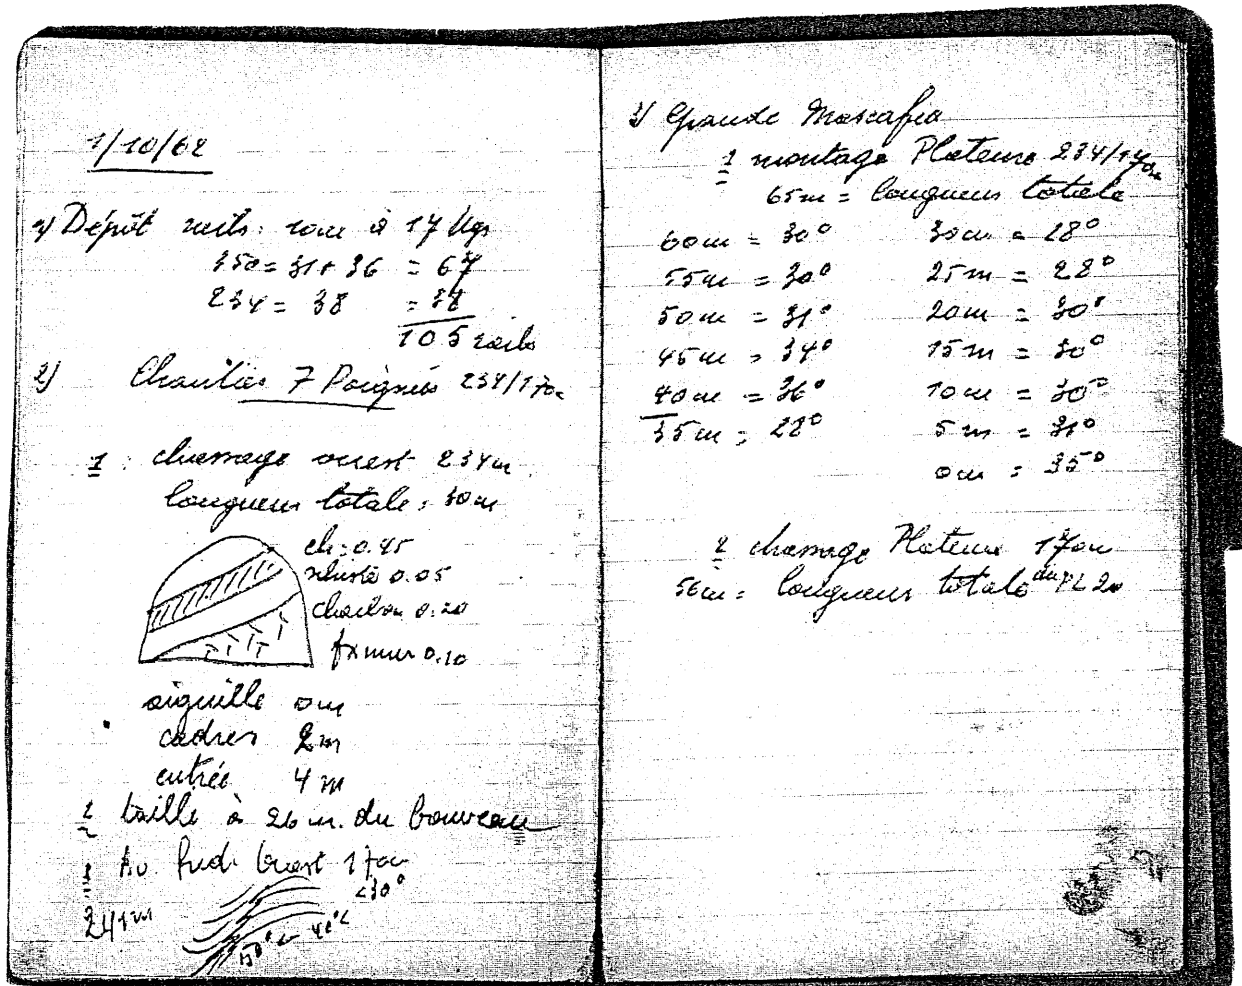 1/10/62
1) Dépôt rails: 10m à 17 kgs
350 = 31 + 36 = 67
234 = 38 = 38
105 rails
2) Chantier 7 Paignies 234/170m
1 chassage ouest 234m
longueur totale: 30m
ch: 0.45
schiste 0.05
charbon 0.20
fx mur 0.10
aiguille 0m
cadres 2m
entrée 4m
2 taille à 26 m. du bouveau
3 Ouest 170m
241m
<30°
50° 40°
3) Grande
1 montage Plateure 234/170m
65m = longueur totale
60m = 30° 30m = 28°
55m = 30° 25m = 28°
50m = 31° 20m = 30°
45m = 34° 15m = 30°
40m = 36° 10m = 30°
35m = 28° 5m = 31°
0m = 35°
2 chassage Plateure 170m
56m = longueur totale du PL 20